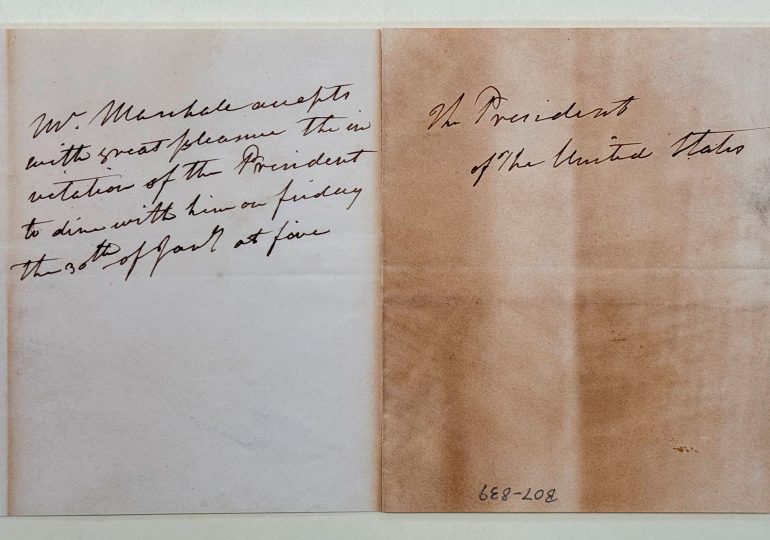 Mr. Marshall accepts
with great pleasure the in
vitation of the President
to dine with him on friday
the 30th of Jany at five
The President
of The United States
B07-839